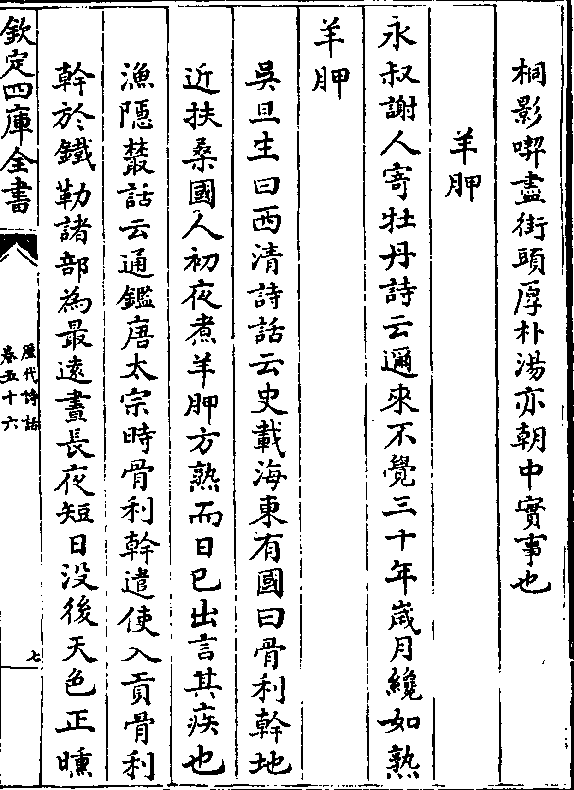 桐影喫盡街頭厚朴湯亦朝中實事也
羊胛
永叔謝人寄牡丹詩云邇來不覺三十年歲月纔如熟
羊胛
吳旦生曰西清詩話云史載海東有國曰骨利幹地
近扶桑國人初夜煮羊胛方熟而日已出言其疾也
漁隠叢話云通鑑唐太宗時骨利幹遣使入貢骨利
幹於鐵勒諸部為最遠晝長夜短日没後天色正曛
欽定四庫全書
歷代詩話
卷五十六
七